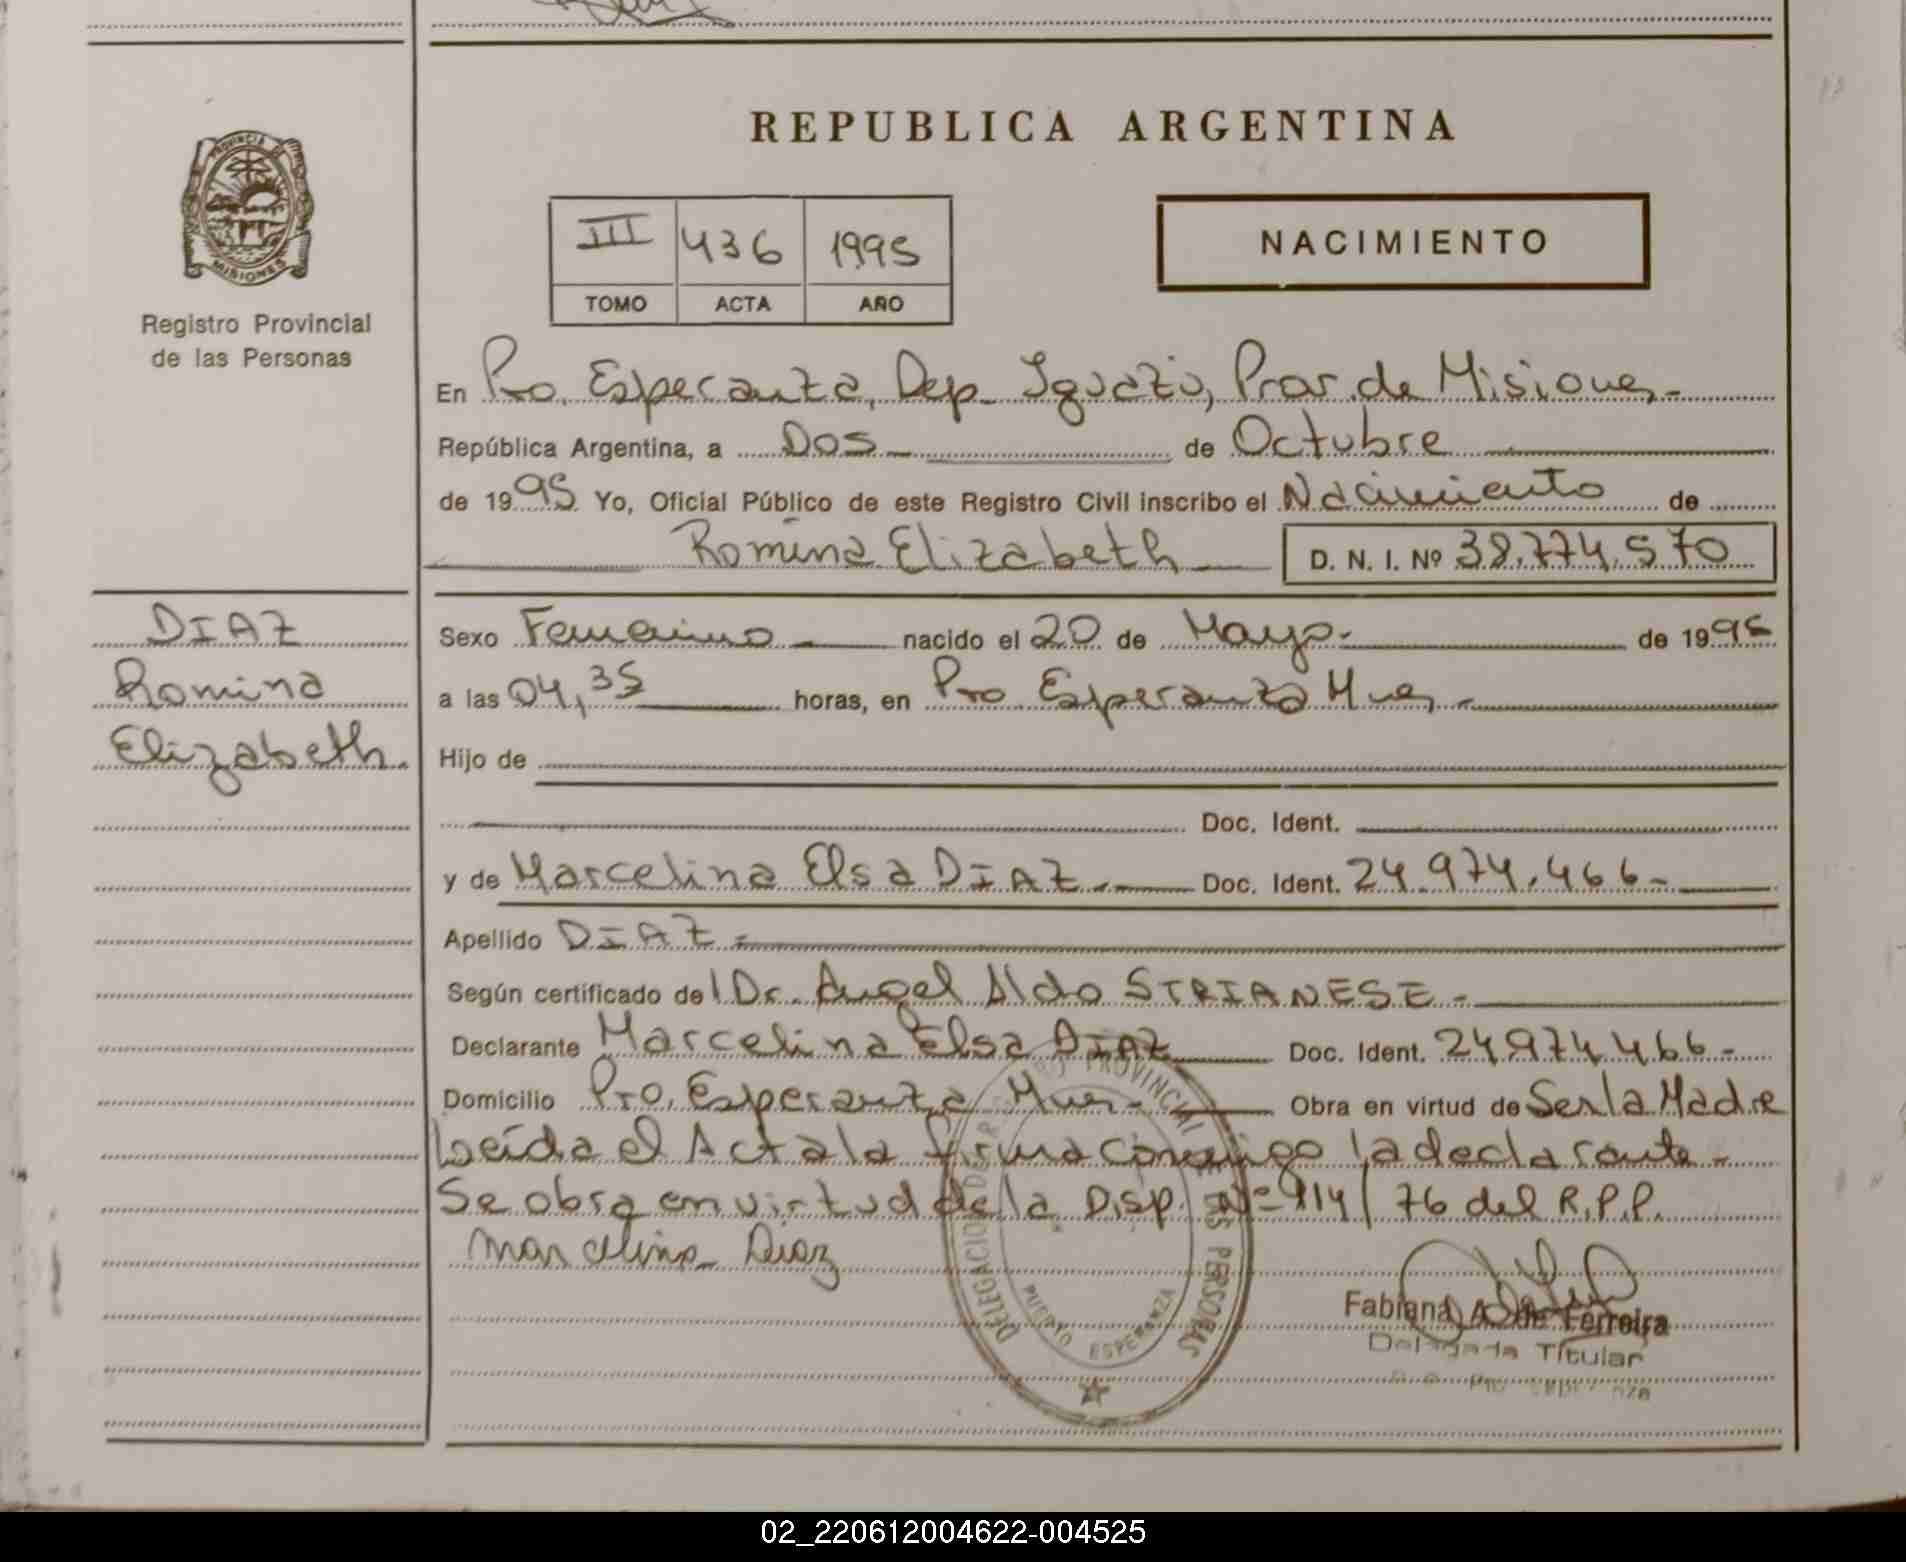 REPUBLICA ARGENTINA
PROVINCIA DE
MISIONES
Registro Provincial
de las Personas
III 436 1995
TOMO ACTA AÑO
NACIMIENTO
En Pto. Esperanza, Dep. Iguazú, Prov. de Misiones.-
República Argentina, a Dos de Octubre
de 1995 Yo, Oficial Público de este Registro Civil inscribo el Nacimiento de
Romina Elizabeth D. N. I. Nº 38.774.570
DIAZ
Romina
Elizabeth.
Sexo Femenino nacido el 20 de Mayo.- de 1995
a las 04,35 horas, en Pto Esperanza Mnes.-
Hijo de
Doc. Ident.
y de Marcelina Elsa DIAZ.- Doc. Ident. 24.974.466-
Apellido DIAZ.-
Según certificado del Dr. Angel Aldo STRIANESE.-
Declarante Marcelina Elsa DIAZ Doc. Ident. 24974466-
Domicilio Pto. Esperanza Mnes.- Obra en virtud de Ser la Madre
Leída el Acta la firma conmigo la declarante.-
Se obra en virtud de la Disp. Nº 914/76 del R.P.P.
Marcelina Diaz
DELEGACION DE REGISTRO PROVINCIAL DE LAS PERSONAS
PUERTO ESPERANZA
Fabiana A. de Ferreira
Delegada Titular
02_220612004622-004525